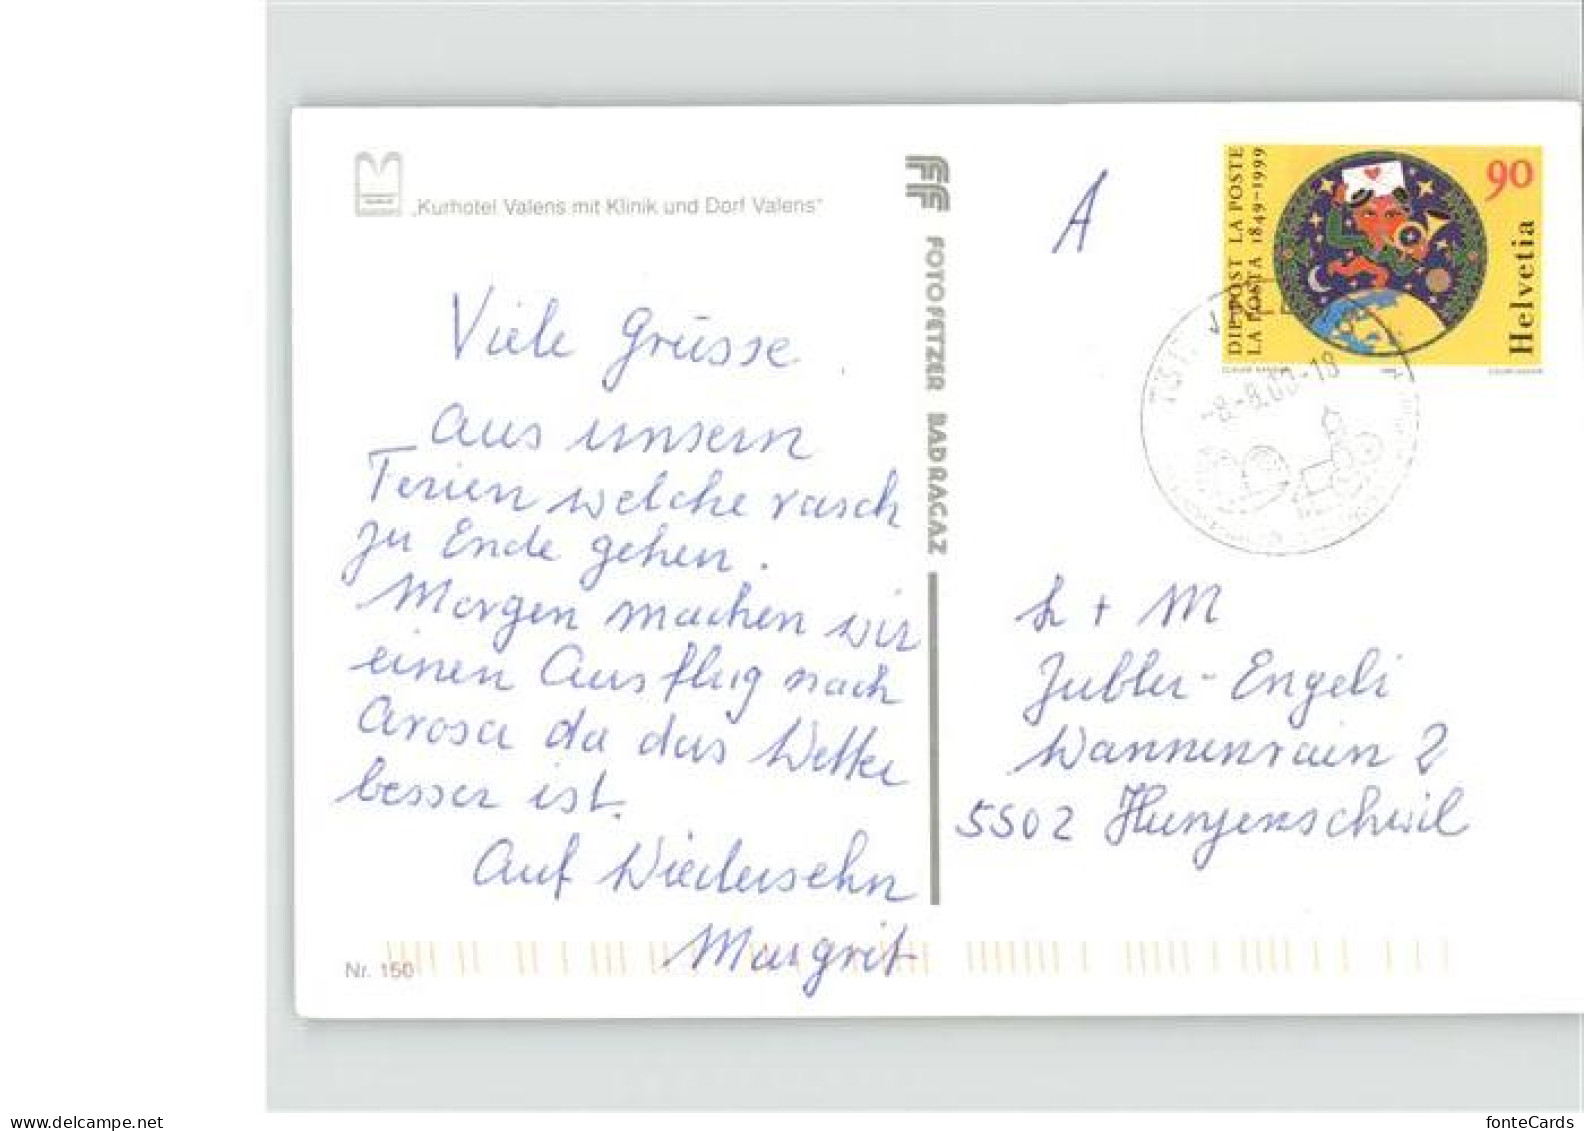 „Kurhotel Valens mit Klinik und Dorf Valens"
Viele Grüsse
aus unsern
Ferien welche rasch
zu Ende gehen.
Morgen machen wir
einen Ausflug nach
Arosa da das Wetter
besser ist.
Auf Wiedersehn
Margrit
Nr. 150
FOTO FETZER BAD RAGAZ
A
DIE POST LA POSTE
LA POSTA 1849-1999
90
Helvetia
-8.-8.00-18
h + M
Jubler-Engeli
Wannenrain 2
5502 Hunzenschwil
delcampe.net
fonteCards